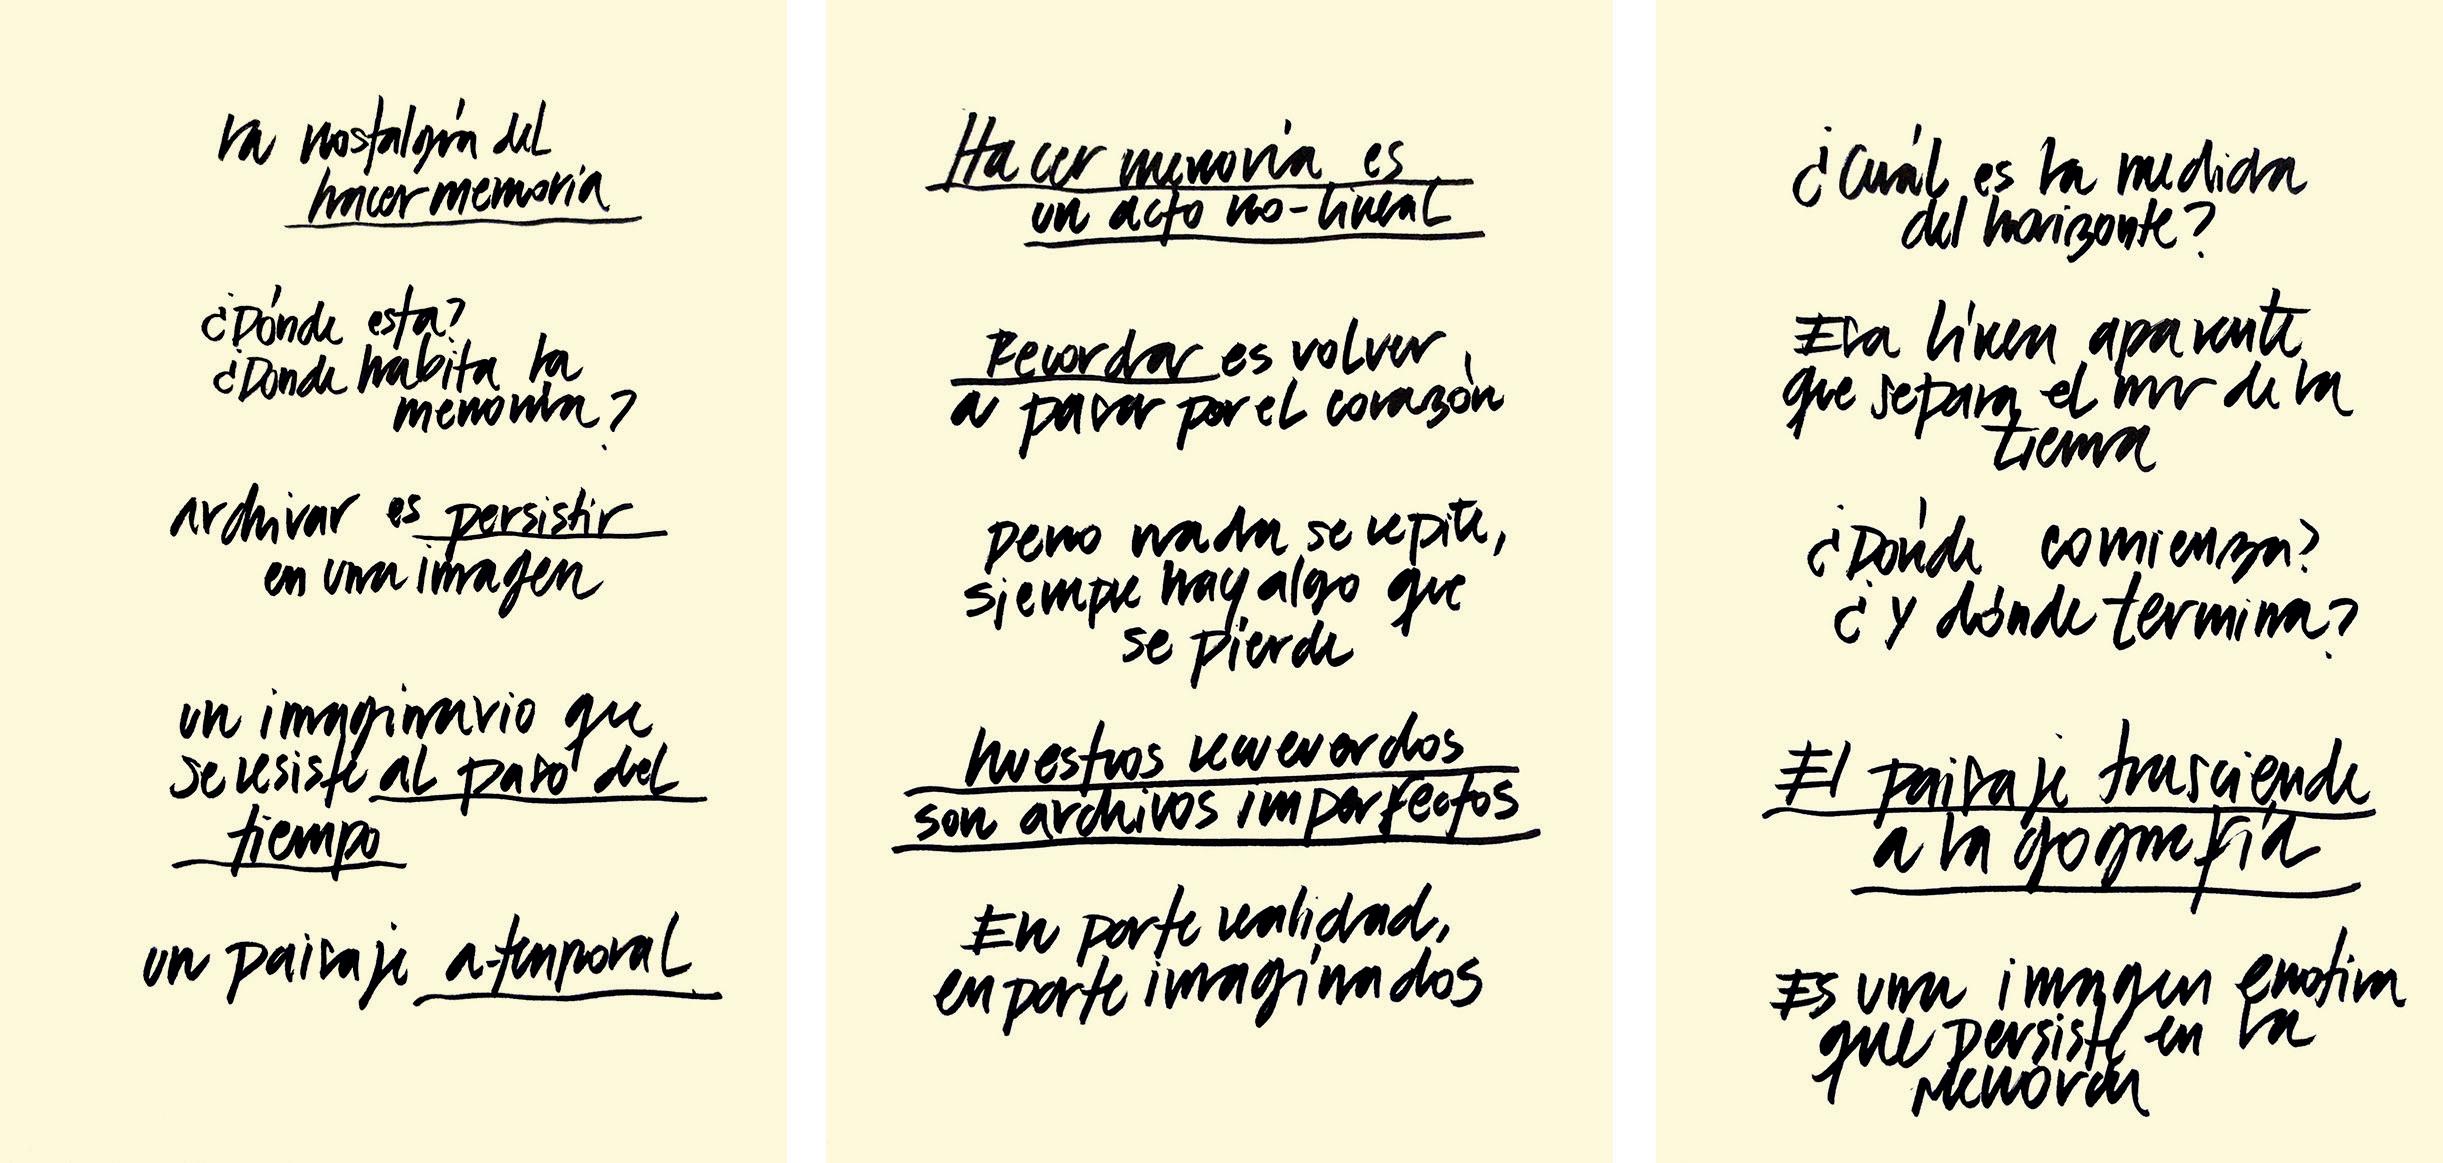 la nostalgia del
hacer memoria
¿Dónde esta?
¿Donde habita la
memoria?
archivar es persistir
en una imagen
un imaginario que
se resiste al paso del
tiempo
un paisaje a-temporal
Hacer memoria es
un acto no-lineal
Recordar es volver
a pasar por el corazón
pero nada se repite,
siempre hay algo que
se pierde
nuestros recuerdos
son archivos imperfectos
En parte realidad,
en parte imaginados
¿Cuál es la medida
del horizonte?
Esa línea aparente
que separa el mar de la
tierra
¿Dónde comienza?
¿y dónde termina?
El paisaje trasciende
a la gografía
Es una imagen emotiva
que persiste en la
memoria